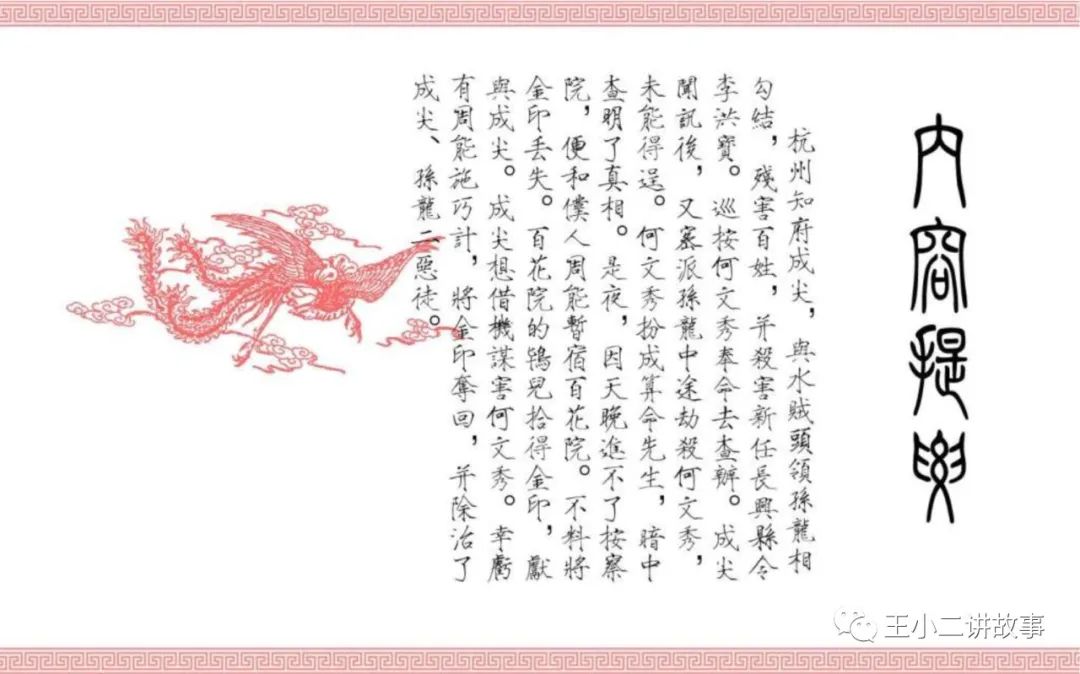 内容提要
杭州知府成尖，與水賊頭領孫龍相
勾結，殘害百姓，并殺害新任長興縣令
李洪寶。巡按何文秀奉命去查辦。成尖
聞訊後，又密派孫龍中途劫殺何文秀，
未能得逞。何文秀扮成算命先生，暗中
查明了真相。是夜，因天晚進不了按察
院，便和僕人周能暫宿百花院。不料將
金印丢失。百花院的鴇兒拾得金印，獻
與成尖。成尖想借機謀害何文秀。幸虧
有周能施巧計，將金印奪回，并除治了
成尖、孫龍二惡徒。
王小二讲故事